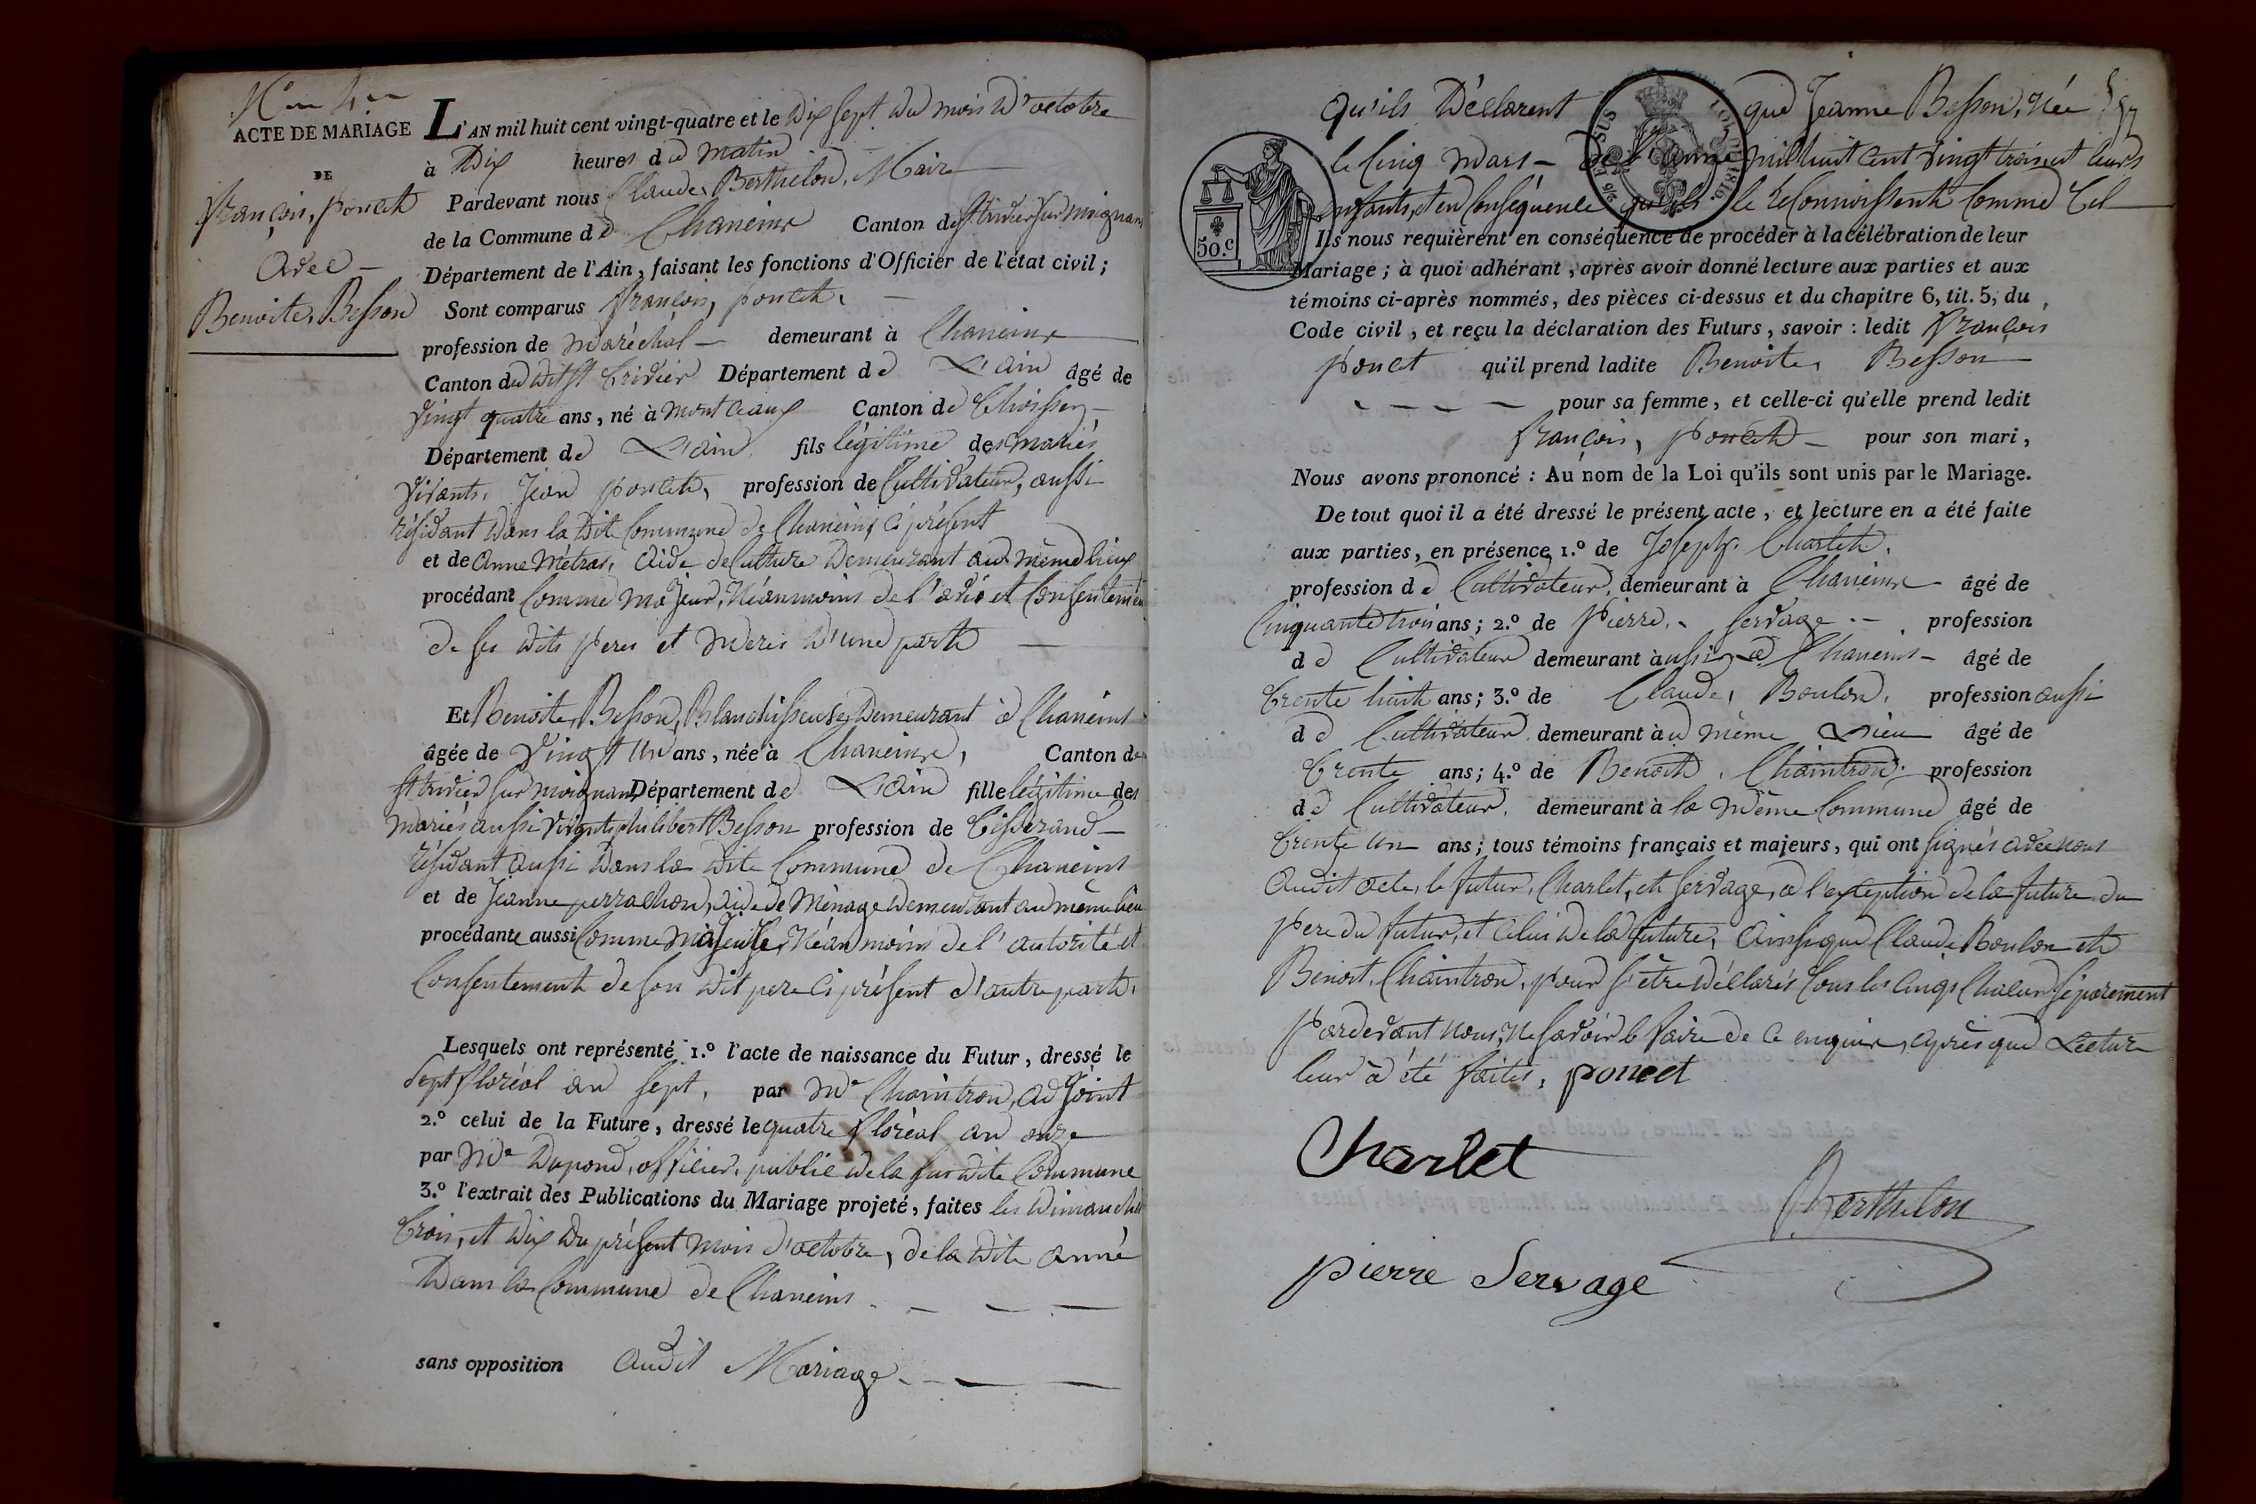 ACTE DE MARIAGE
DE
François, poncet
Avec
Benoite, Besson
L'AN mil huit cent vingt-quatre et le Dix sept du mois d'octobre
à Dix heures du matin
Pardevant nous Claude, Berthelon, Maire
de la Commune de Chaneins Canton de St trivier sur moignans
Département de l'Ain, faisant les fonctions d'Officier de l'état civil;
Sont comparus François, poncet,
profession de maréchal demeurant à Chaneins
Canton du dit St trivier Département de L'ain âgé de
vingt quatre ans, né à montceaux Canton de thoissey
Département de L'ain fils légitime des mariés
vivants, Jean poncet, profession de Cultivateur, aussi
résidant dans la dite Commune de Chaneins, ci présent
et de Anne Métras, aide de Culture demeurant au même lieux
procédant Comme majeur, Néanmoins de l'avis et Consentement
de ses dits peres et meres d'une part
Et Benoite, Besson, Blanchisseuse, demeurant à Chaneins
âgée de vingt un ans, née à Chaneins, Canton de
St trivier sur moignans Département de L'ain fille légitime des
mariés aussi vivants philibert Besson profession de tisserand
résidant aussi dans la dite Commune de Chaneins
et de Jeanne perrachon, aide de Ménage demeurant au même lieu
procédante aussi Comme Majeure, Néanmoins de l'autorité et
Consentement de son dit pere ci présent d'autre part.
Lesquels ont représenté 1.º l'acte de naissance du Futur, dressé le
sept floréal an sept, par Mr Chaintron, adjoint
2.º celui de la Future, dressé le quatre floréal an onze
par Mr Dupond, officier, public de la susdite Commune
3.º l'extrait des Publications du Mariage projeté, faites les dimanches
trois, et dix du présent mois d'octobre, de la dite année
Dans la Commune de Chaneins
sans opposition audit Mariage
qu'ils Déclarent que Jeanne Besson, Née
le Cinq mars de l'année mil huit cent vingt trois est leurs
enfants, et en Conséquence qu'ils le reconnoissent Comme tel
50.c
Ils nous requièrent en conséquence de procéder à la célébration de leur
Mariage; à quoi adhérant, après avoir donné lecture aux parties et aux
témoins ci-après nommés, des pièces ci-dessus et du chapitre 6, tit. 5, du
Code civil, et reçu la déclaration des Futurs, savoir: ledit François
poncet qu'il prend ladite Benoite, Besson
pour sa femme, et celle-ci qu'elle prend ledit
François, poncet pour son mari,
Nous avons prononcé: Au nom de la Loi qu'ils sont unis par le Mariage.
De tout quoi il a été dressé le présent acte, et lecture en a été faite
aux parties, en présence 1.º de Joseph, Charlet,
profession de Cultivateur, demeurant à Chaneins âgé de
Cinquante trois ans; 2.º de Pierre, Servage profession
de Cultivateur demeurant aussi à Chaneins âgé de
trente huit ans; 3.º de Claude, Boulon, profession aussi
de Cultivateur demeurant au même Lieu âgé de
trente ans; 4.º de Benoit, Chaintron, profession
de Cultivateur, demeurant à la même Commune âgé de
trente un ans; tous témoins français et majeurs, qui ont signés avec nous
audit acte, le futur, Charlet, et Servage, a l'exception de la future du
pere du futur, et celui de la future, ainsi que Claude Boulon et
Benoit, Chaintron, pour s'être déclarés tous les cinqs chacun séparement
pardevant nous, Ne savoir le faire de ce enquis, après que Lecture
leur à été faites, poncet
Charlet
Berthelon
pierre Servage